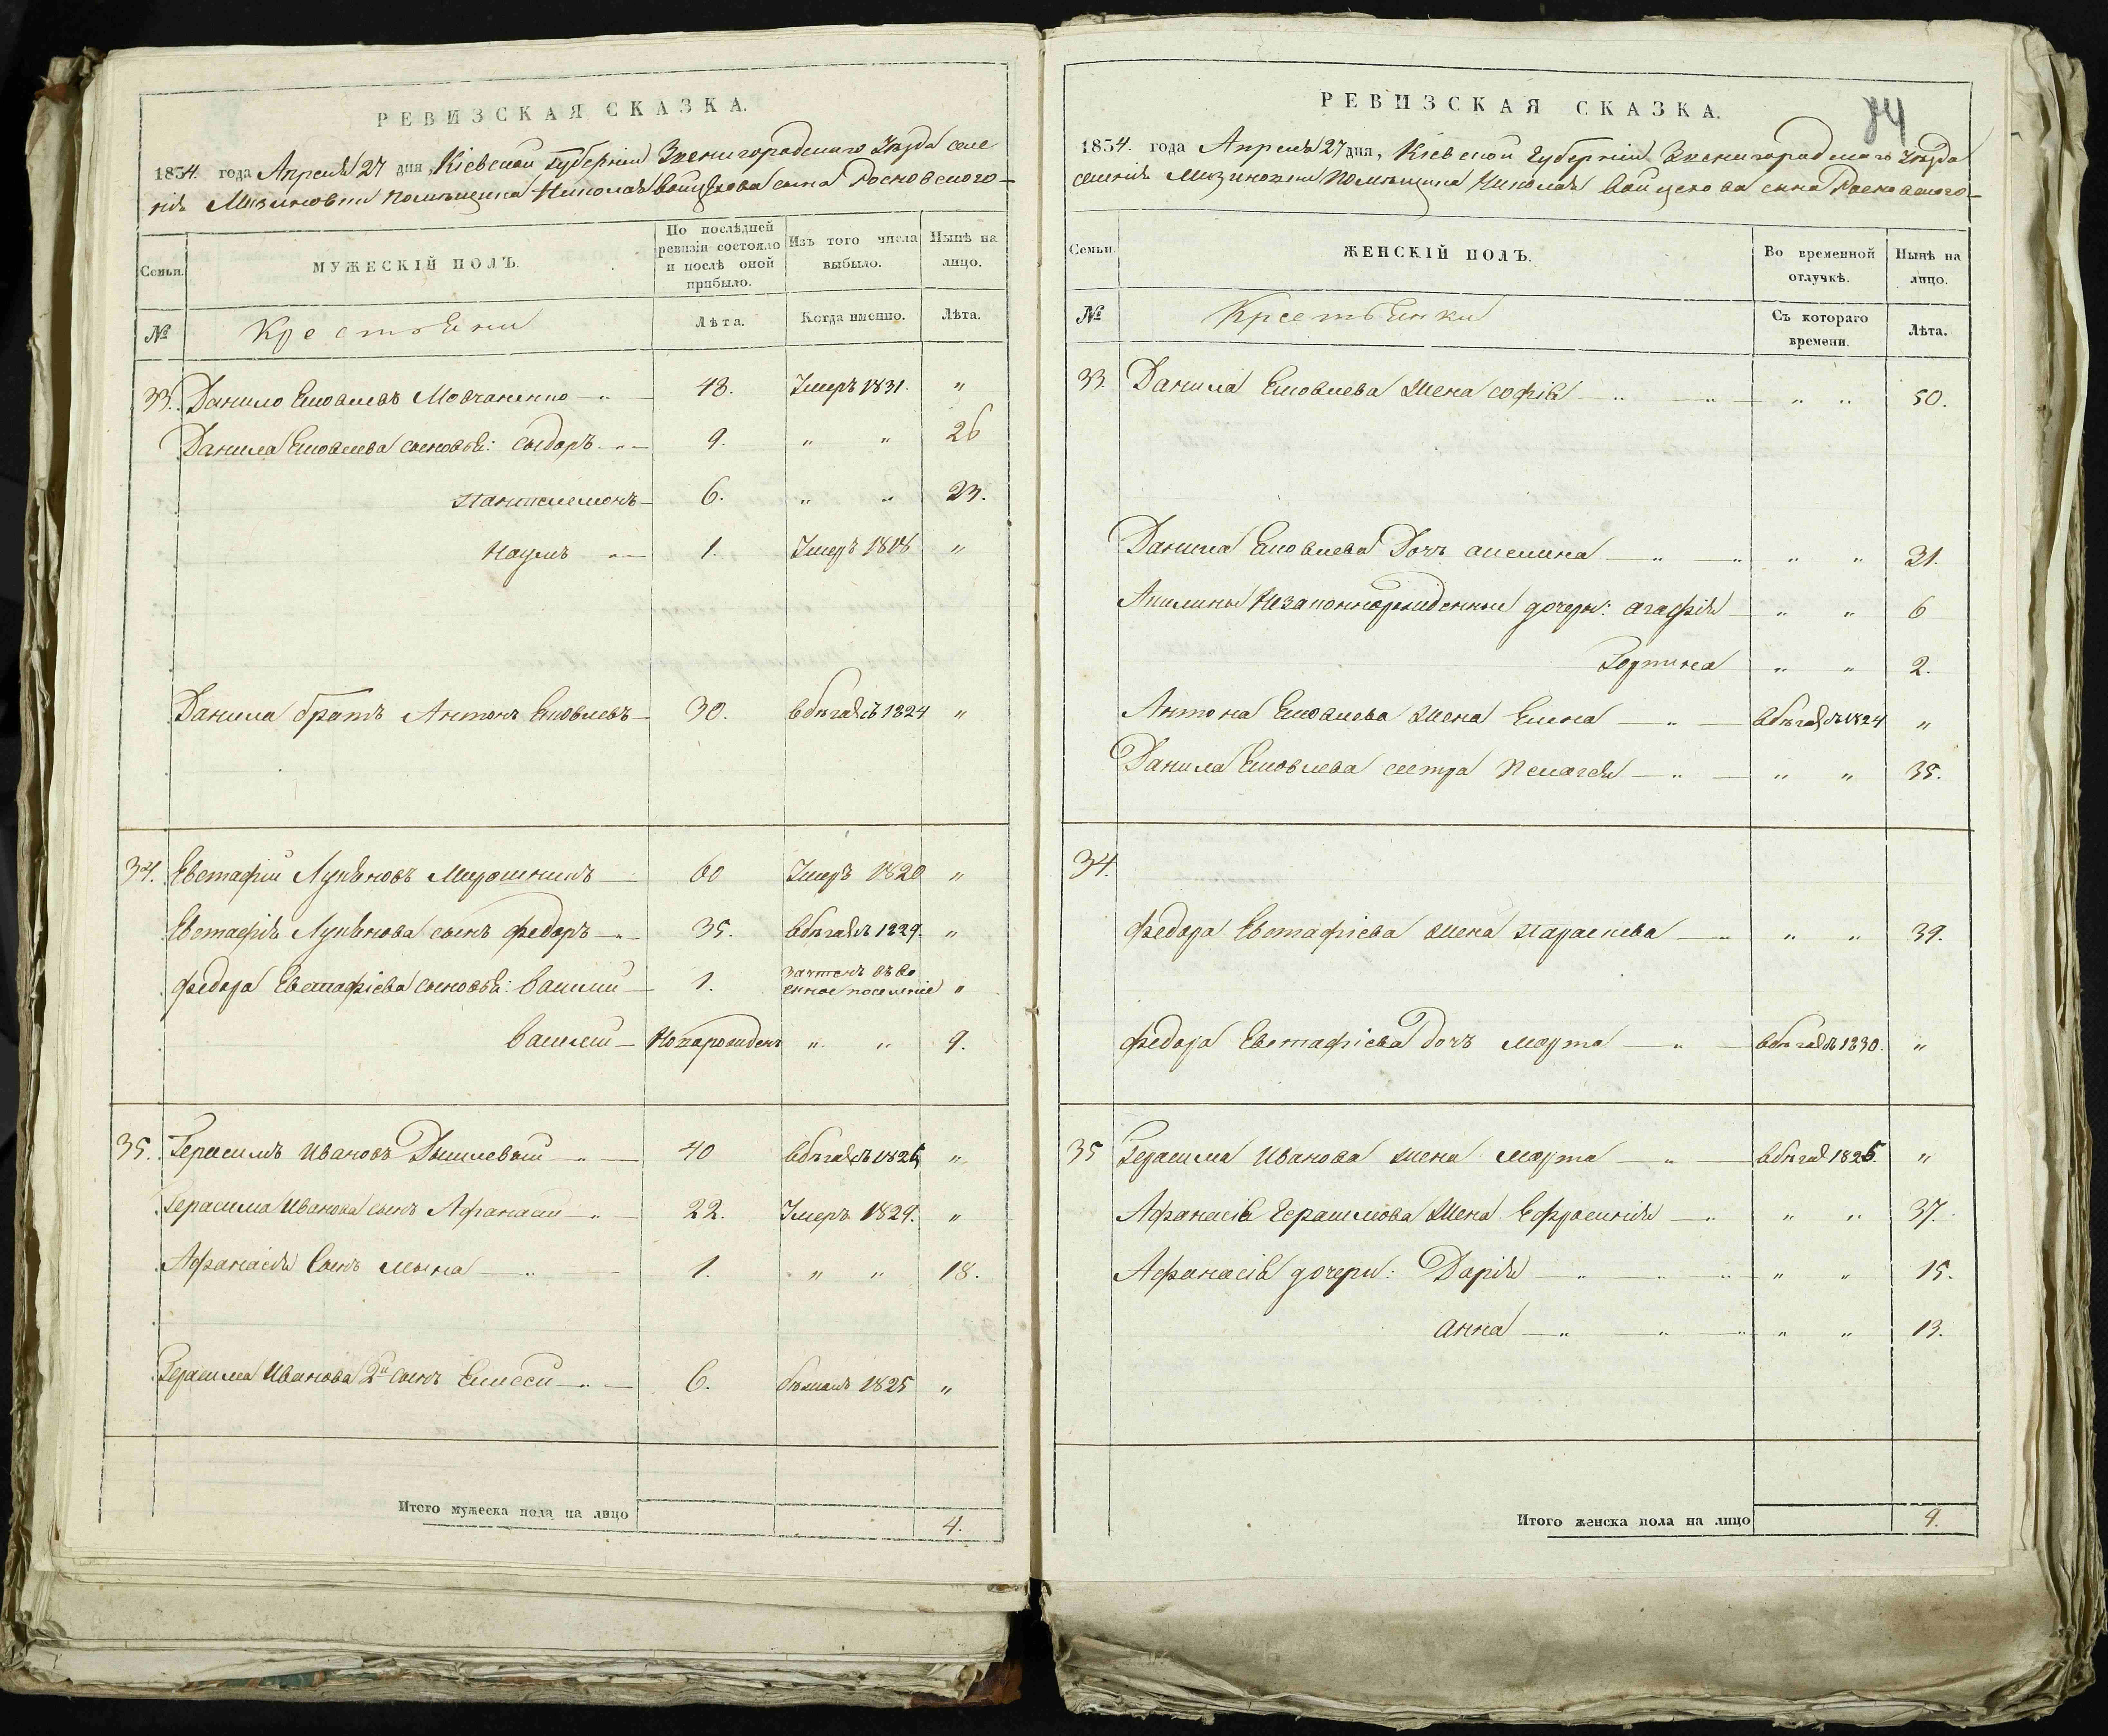 РЕВИЗСКАЯ СКАЗКА.
1834. года Апреля 27 дня, Кіевской Губерніи Звенигородскаго Уезда селе
нія Мизиновки помещика Николая Войцехова сына Росковского
Семьи.
МУЖЕСКІЙ ПОЛЪ.
По послѣдней ревизіи состояло и послѣ оной прибыло.
Изъ того числа выбыло.
Нынѣ на лицо.
№
Крестьяни
Лѣта.
Когда именно.
Лѣта.
33. Данило Яковлевъ Мовчаненко 43. Умеръ 1831. "
Данила Яковлева сыновья: Сыдоръ 9. " " 26
Пантелемонъ 6. " " 23.
Наумъ 1. Умеръ 1818 "
Данила братъ Антонъ Яковлевъ 30. в бегах съ 1824 "
34. Евстафiй Лукяновъ Мирошникъ 60 Умеръ 1820 "
Евстафія Лукянова сынъ Федоръ 35. в бегах съ 1829. "
Федора Евстафіева сыновья: Василий 1. зачтенъ въ во
енное поселеніе "
Василей Новарожденъ " " 9.
35. Герасимъ Ивановъ 40 в бегах съ 1825 "
Герасима Иванова сынъ Афанасий 22. Умеръ 1829. "
Афанасія сынъ Мына 1. " " 18.
Герасима Иванова 2й сынъ Елисей 6. бежалъ 1825 "
Итого мужеска пола на лицо 4.
84
РЕВИЗСКАЯ СКАЗКА.
1834. года Апреля 27 дня, Кіевской Губерніи Звенигородскаго Уезда
селенія Мизиновки Помещика Николая Войцехова сына Росковского
Семьи.
ЖЕНСКІЙ ПОЛЪ.
Во временной отлучкѣ.
Нынѣ на лицо.
№
Крестьянки
Съ котораго времени.
Лѣта.
33. Данила Яковлева жена Софія " " 50.
Данила Яковлева дочь Акелина " " 31.
Акилины незаконнорожденные дочери: Агафія " " 6
" " 2.
Антона Яковлева жена Елена в бегах съ 1824 "
Данила Яковлева сестра Пелагея " " 35.
34.
Федора Евстафіева жена Параскева " " 39.
Федора Евстафіева дочь Марта в бегах съ 1830. "
35 Герасима Иванова жена Марта в бегах 1825. "
Афанасія Герасимова жена Ефросинія " " 37.
Афанасія дочери: Дарія " " 15.
Анна " " 13.
Итого женска пола на лицо 9.